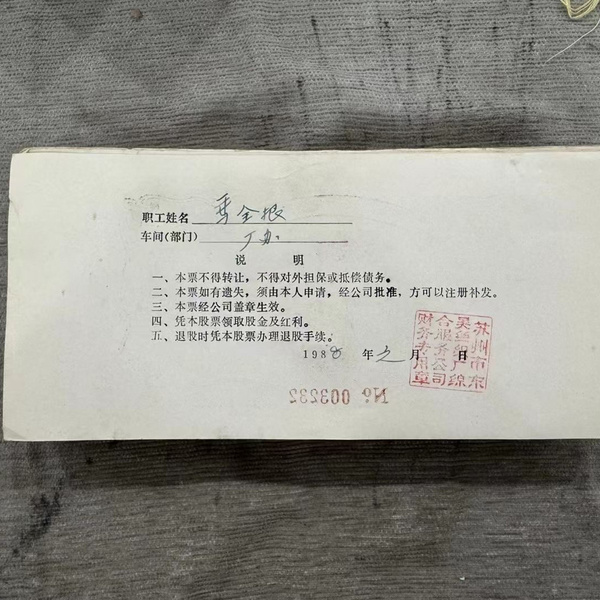 职工姓名 金根
车间(部门) 厂办
说 明
一、本票不得转让，不得对外担保或抵偿债务。
二、本票如有遗失，须由本人申请，经公司批准，方可以注册补发。
三、本票经公司盖章生效。
四、凭本股票领取股金及红利。
五、退股时凭本股票办理退股手续。
1988 年 元 月 日
苏州市东
吴丝织厂综
合服务公司
财务专用章
№ 003232